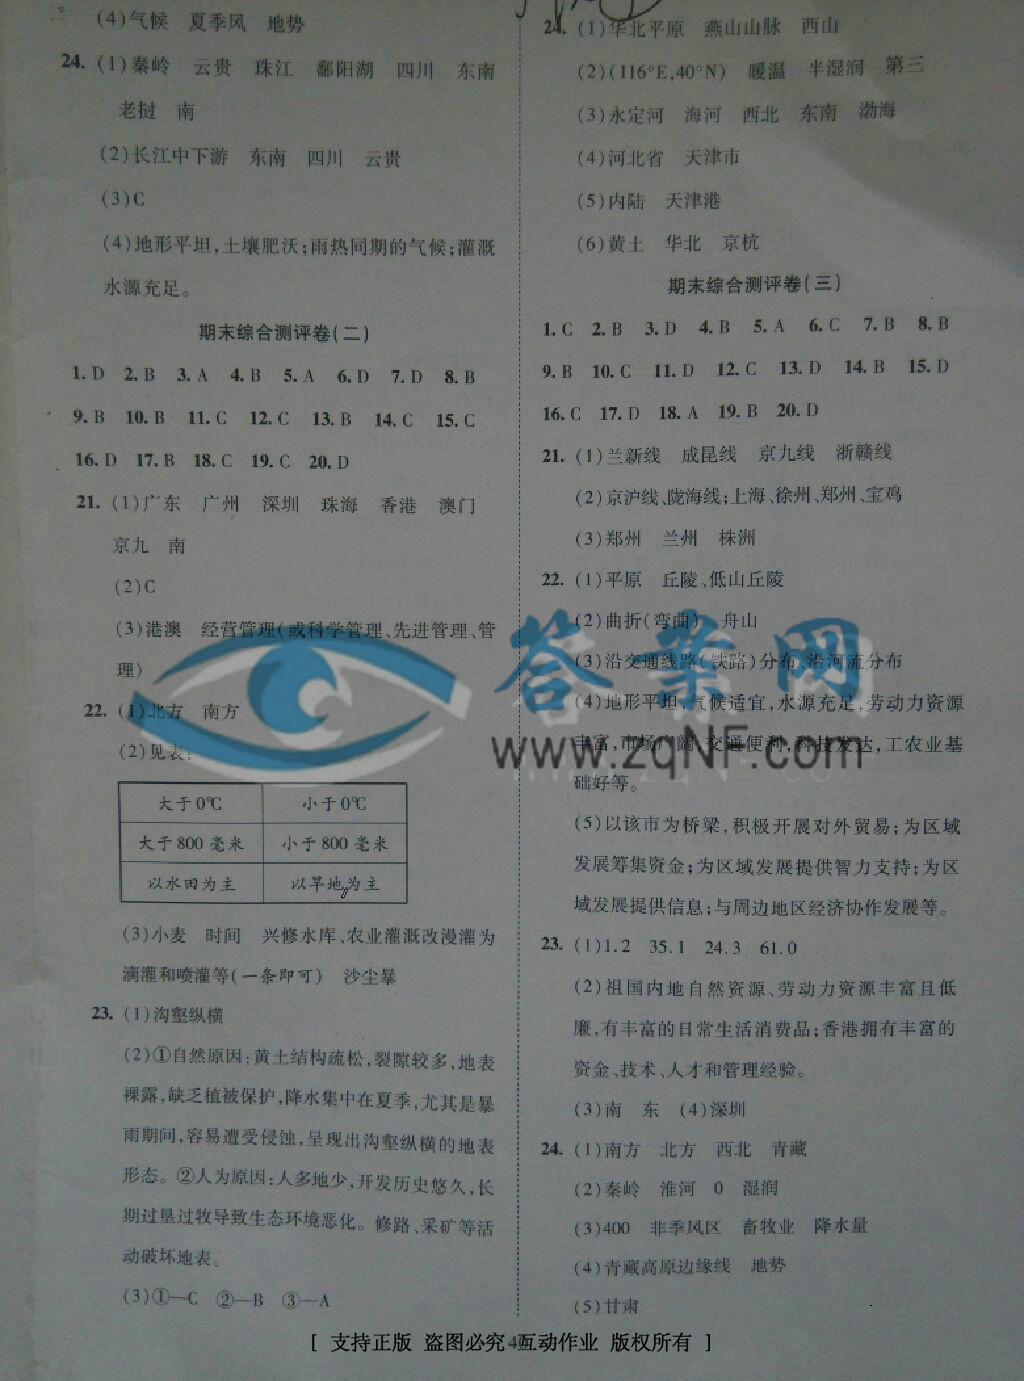 (4)气候 夏季风 地势
24. (1)秦岭 云贵 珠江 鄱阳湖 四川 东南
老挝 南
(2)长江中下游 东南 四川 云贵
(3)C
(4)地形平坦,土壤肥沃;雨热同期的气候;灌溉
水源充足。
期末综合测评卷(二)
1. D 2. B 3. A 4. B 5. A 6. D 7. D 8. B
9. B 10. B 11. C 12. C 13. B 14. C 15. C
16. D 17. B 18. C 19. C 20. D
21. (1)广东 广州 深圳 珠海 香港 澳门
京九 南
(2)C
(3)港澳 经营管理(或科学管理、先进管理、管
理)
22. (1)北方 南方
(2)见表:
大于0℃ 小于0℃
大于800毫米 小于800毫米
以水田为主 以旱地为主
(3)小麦 时间 兴修水库、农业灌溉改漫灌为
滴灌和喷灌等(一条即可) 沙尘暴
23. (1)沟壑纵横
(2)①自然原因:黄土结构疏松,裂隙较多,地表
裸露,缺乏植被保护,降水集中在夏季,尤其是暴
雨期间,容易遭受侵蚀,呈现出沟壑纵横的地表
形态。②人为原因:人多地少,开发历史悠久,长
期过垦过牧导致生态环境恶化。修路、采矿等活
动破坏地表。
(3)①—C ②—B ③—A
24. (1)华北平原 燕山山脉 西山
(2)(116°E,40°N) 暖温 半湿润 第三
(3)永定河 海河 西北 东南 渤海
(4)河北省 天津市
(5)内陆 天津港
(6)黄土 华北 京杭
期末综合测评卷(三)
1. C 2. B 3. D 4. B 5. A 6. C 7. B 8. B
9. B 10. C 11. D 12. C 13. D 14. B 15. D
16. C 17. D 18. A 19. B 20. D
21. (1)兰新线 成昆线 京九线 浙赣线
(2)京沪线、陇海线;上海、徐州、郑州、宝鸡
(3)郑州 兰州 株洲
22. (1)平原 丘陵、低山丘陵
(2)曲折(弯曲) 舟山
(3)沿交通线路(铁路)分布 沿河流分布
(4)地形平坦,气候适宜,水源充足,劳动力资源
丰富,市场广阔,交通便利,科技发达,工农业基
础好等。
(5)以该市为桥梁,积极开展对外贸易;为区域
发展筹集资金;为区域发展提供智力支持;为区
域发展提供信息;与周边地区经济协作发展等。
23. (1)1.2 35.1 24.3 61.0
(2)祖国内地自然资源、劳动力资源丰富且低
廉,有丰富的日常生活消费品;香港拥有丰富的
资金、技术、人才和管理经验。
(3)南 东 (4)深圳
24. (1)南方 北方 西北 青藏
(2)秦岭 淮河 0 湿润
(3)400 非季风区 畜牧业 降水量
(4)青藏高原边缘线 地势
(5)甘肃
答案网
www.zqNF.com
[ 支持正版 盗图必究 互动作业 版权所有 ]